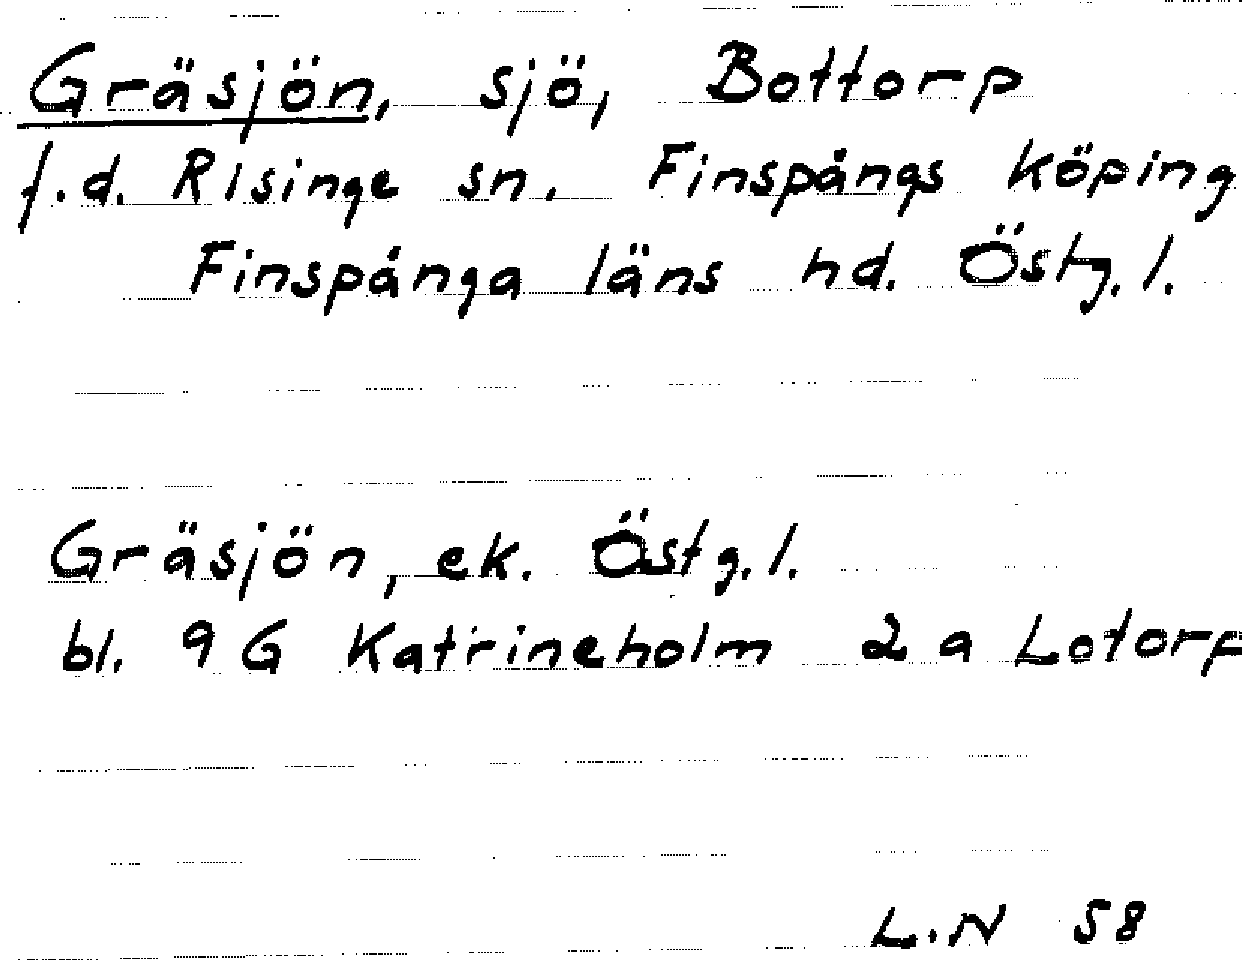 Gräsjön, sjö, Bottorp
f.d. Risinge sn. Finspångs köping
Finspånga läns hd. Östg.l.
Gräsjön, ek. Östg.l.
bl. 9 G Katrineholm 2 a Lotorp
L.N 58